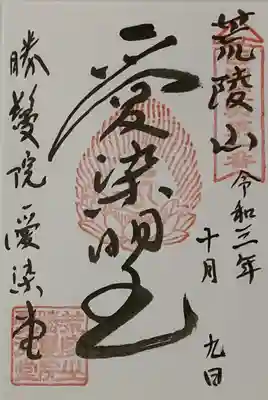 荒陵山
令和三年
十月 九日
愛染明王
勝鬘院愛染堂